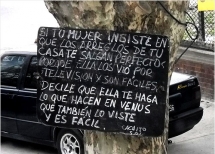 SI TU MUJER INSISTE EN
QUE LOS ARREGLOS DE TU
CASA TE SALGAN PERFECTO
PORQUE ELLA LOS VIO POR
TELEVISION Y SON FACILES
DECILE QUE ELLA TE HAGA
LO QUE HACEN EN VENUS
QUE TAMBIÉN LO VISTE
Y ES FACIL.